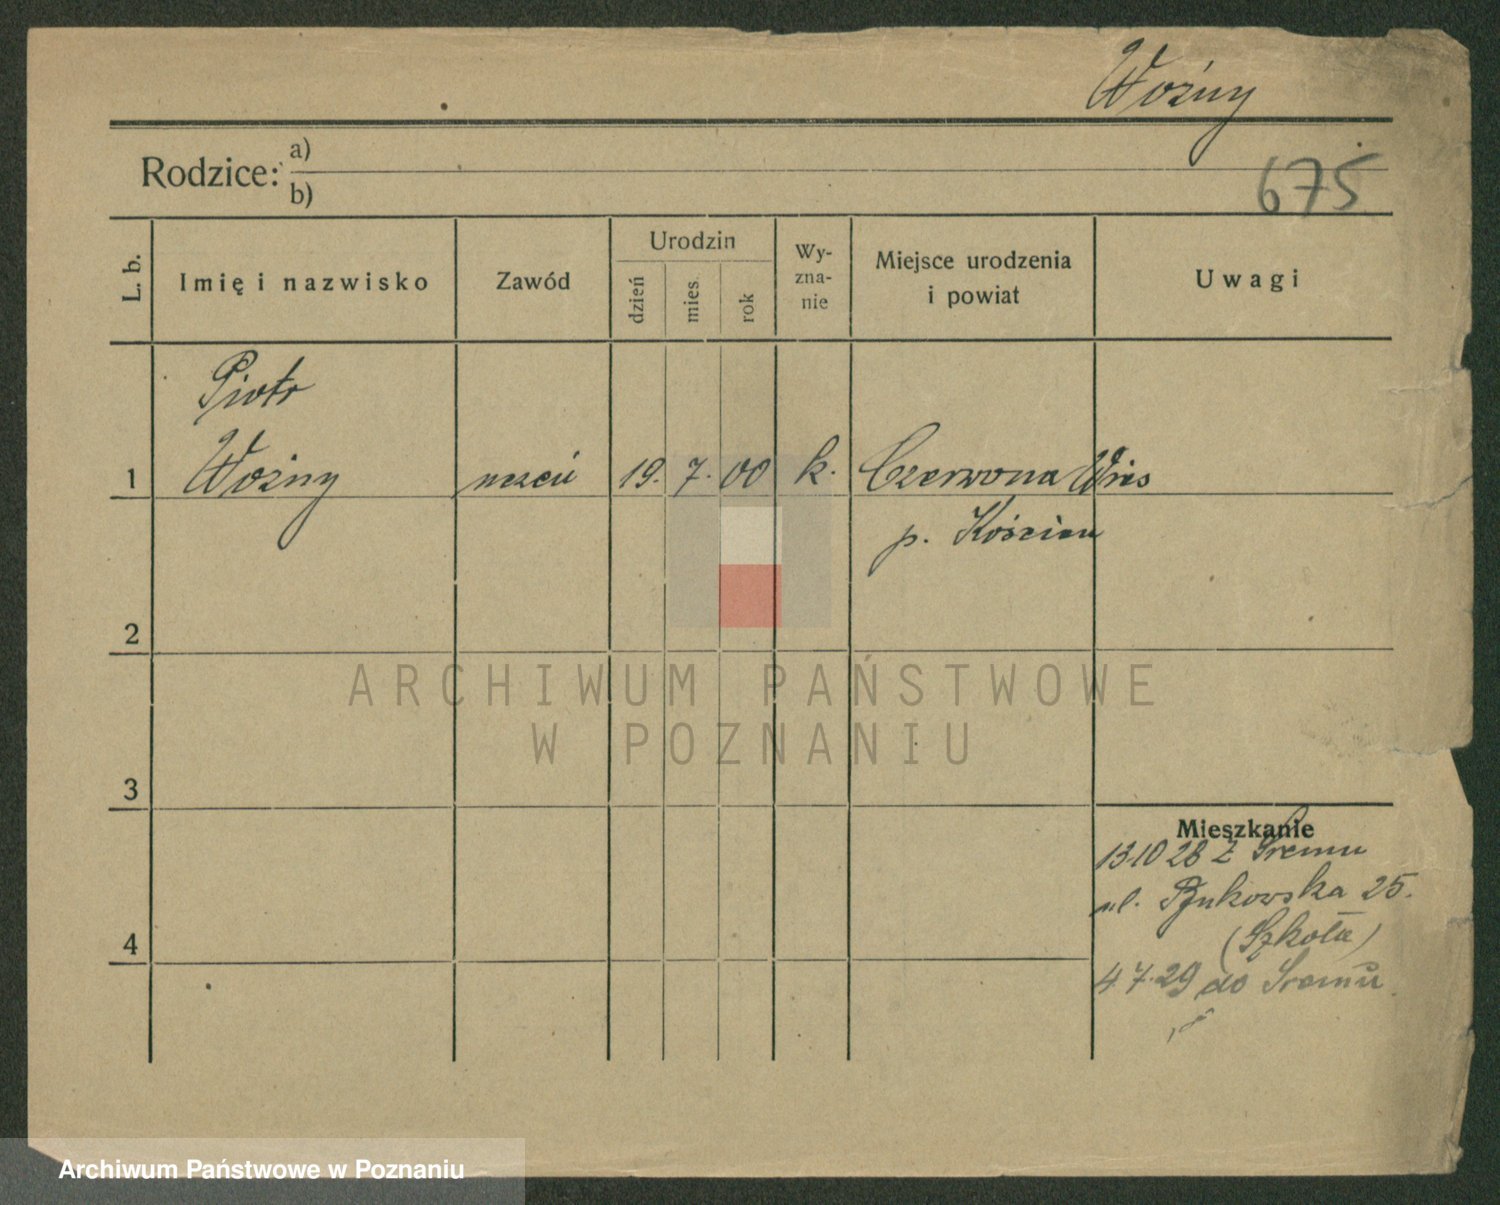 Woźny
Rodzice: a)
b)
675
L. b.
Imię i nazwisko
Zawód
Urodzin
dzień
mies.
rok
Wy-
zna-
nie
Miejsce urodzenia
i powiat
Uwagi
Piotr
1 Woźny uczeń 19. 7. 00 k. Czerwona Wieś
p. Kościan
2
ARCHIWUM PAŃSTWOWE
W POZNANIU
3
Mieszkanie
13 10 28 z Śremu
ul. Bukowska 25.
(Szkoła)
4
4.7.29 do Śremu
Archiwum Państwowe w Poznaniu